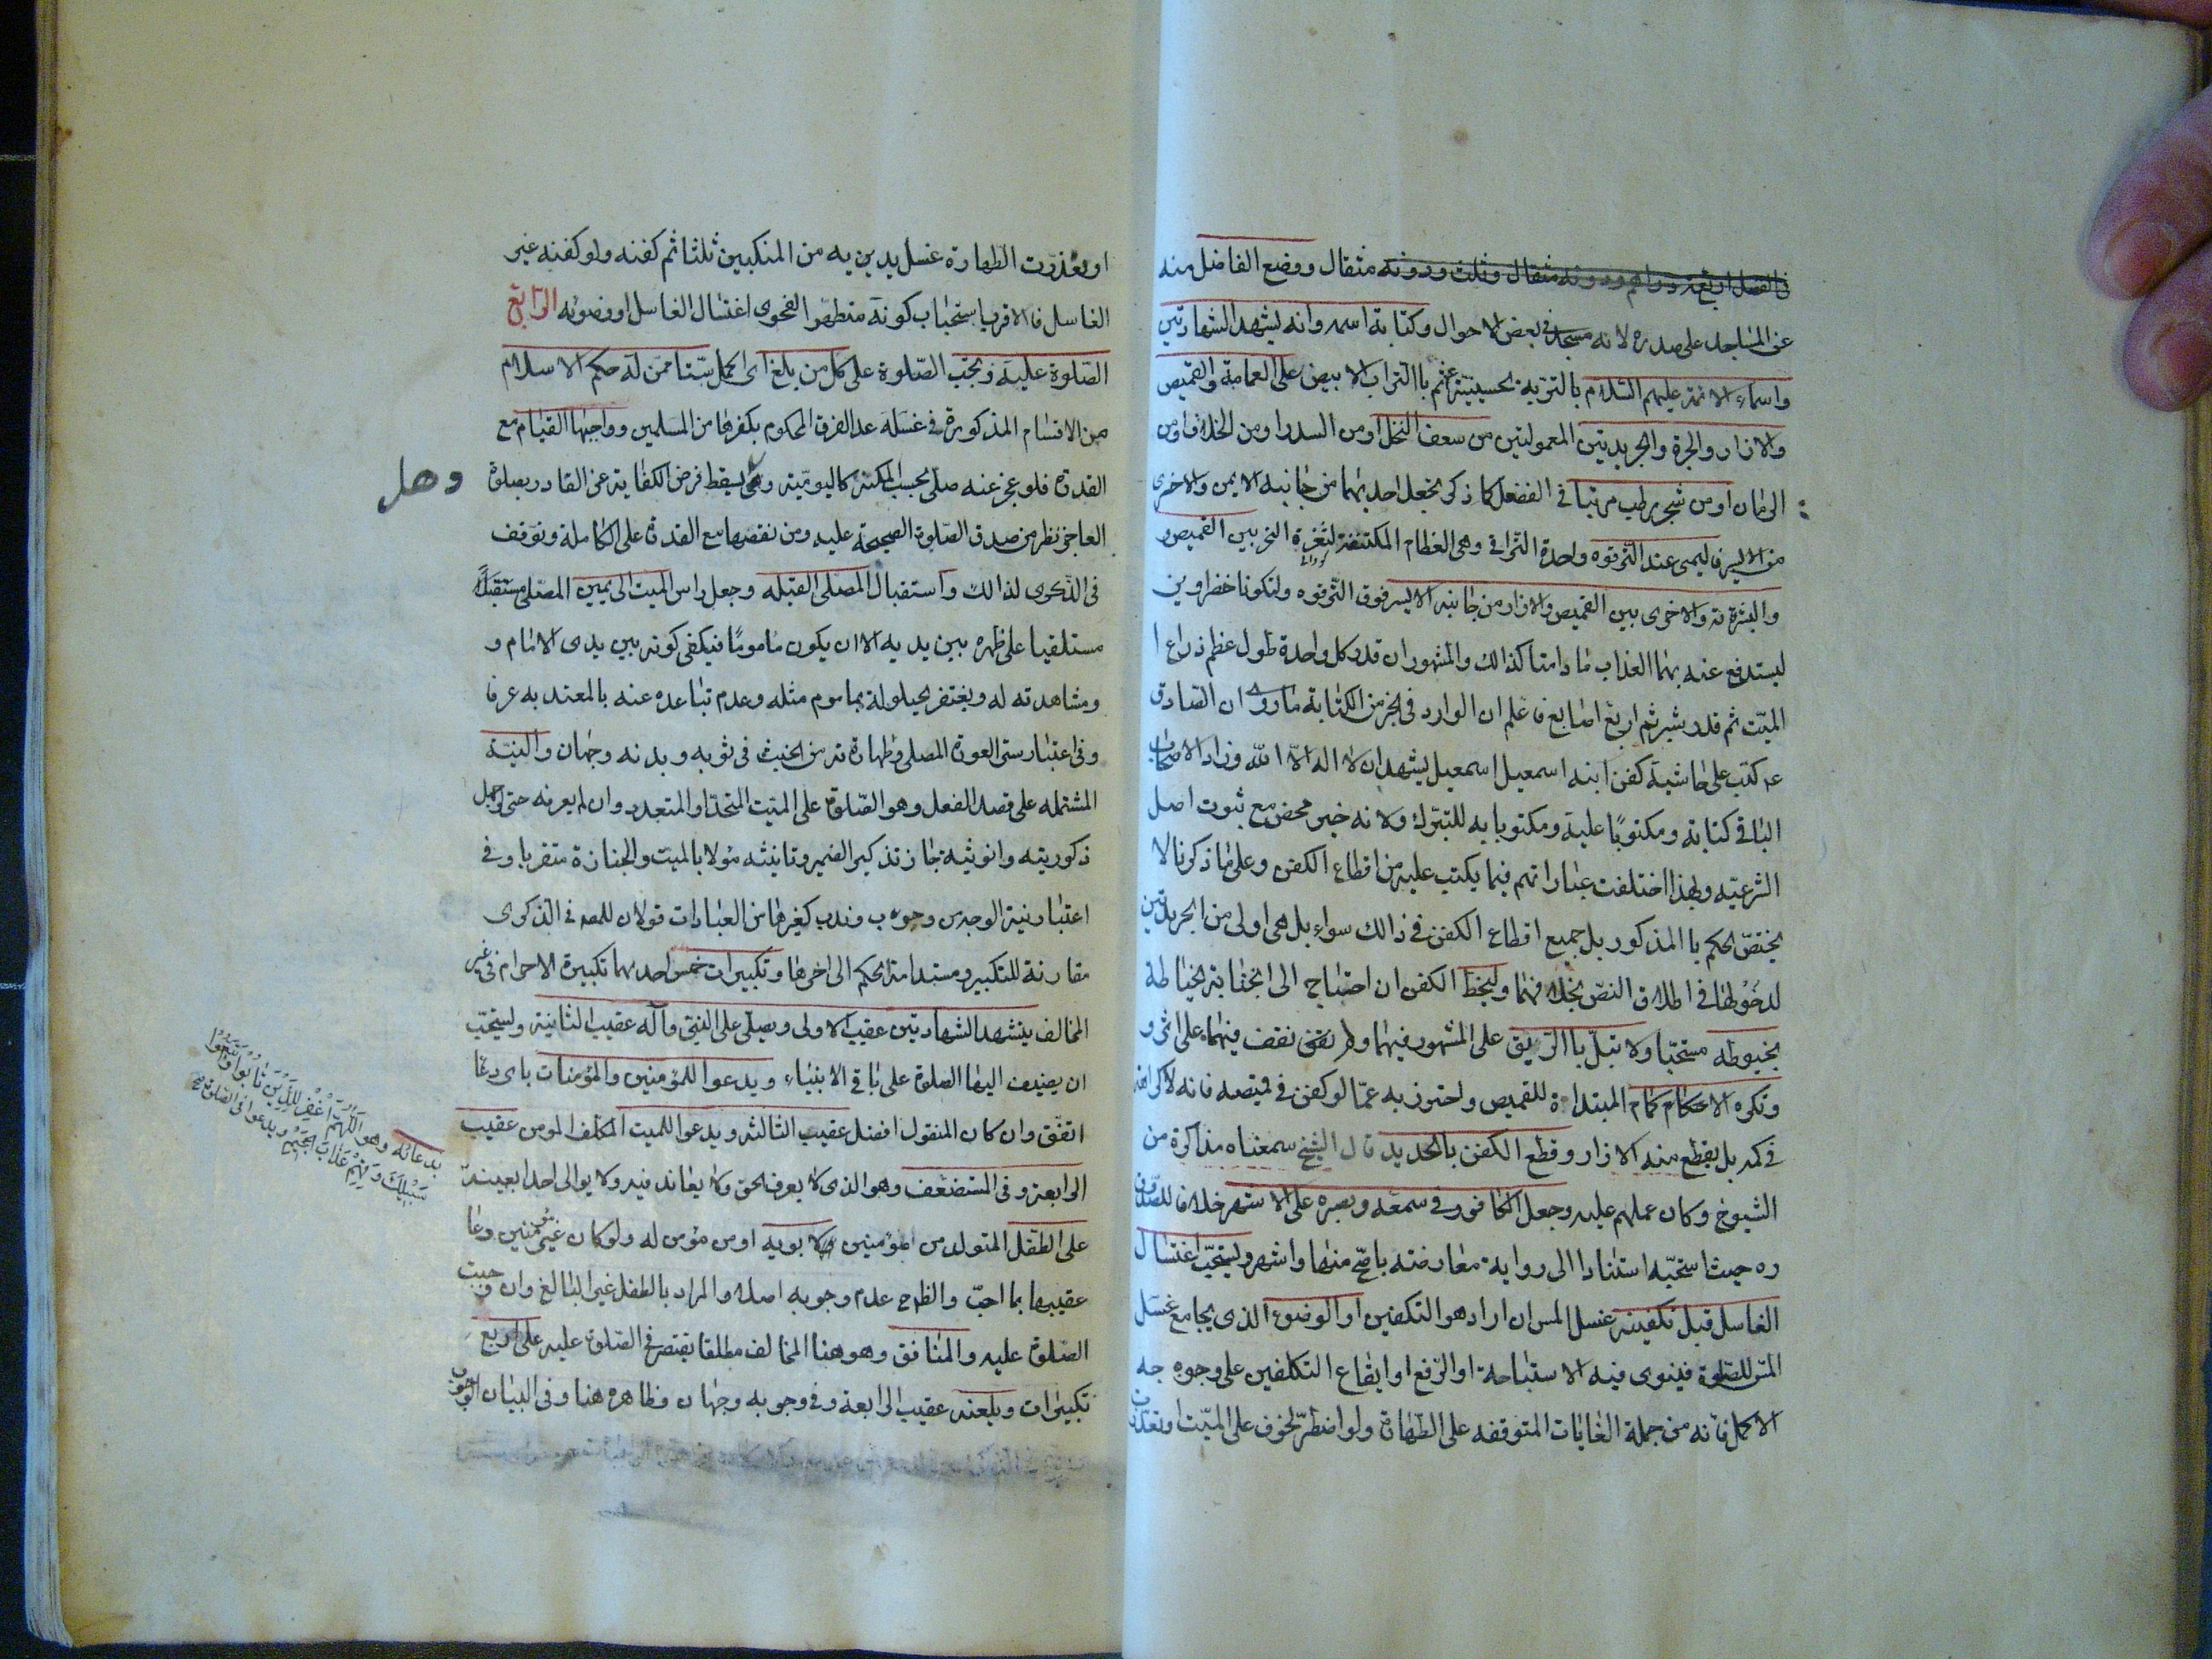 في الفضل اربعة دراهم ودونه مثقال وثلث ودونه مثقال ووضع الفاضل منه
عن المساجد على صدره لانه مسجد في بعض الاحوال وكتابة اسمه وانه يشهد الشهادتين
واسماء الائمة عليهم السلام بالتربة الحسينية ثم باالتراب الابيض على العمامة والقميص
والازار والحبرة والجريدتين المعمولتين من سعف النخل او من السدر او من الخلاف او من
الرمان او من شجر رطب مرتبا في الفضل كما ذكر يجعل احديهما من جانبه الايمن والاخرى
من الايسر فاليمنى عند الترقوه واحدة التراقي وهي العظام المكتنفة لثغرة النحر بين القميص و
والبشرة ته والاخرى بين القميص والازار من جانبه الايسر فوق الترقوه ولتكونا خضراوين
ليستدفع عنه بهما العذاب ما دامتا كذالك والمشهور ان قدر كل واحدة طول عظم ذراع ا
الميت ثم قدر شبر ثم اربع اصابع فاعلم ان الوارد في الخبر من الكتابة ما روى ان الصادق
عم كتب على حاشية كفن ابنه اسمعيل اسمعيل يشهد ان لا اله الا الله وزاد الاصحاب
الباقي كتابة ومكتوبا عليه ومكتوبا به للتبرك ولانه خير محض مع ثبوت اصل
الشرعيه ولهذا اختلفت عباراتهم فيما يكتب عليه من اقطاع الكفن وعلى ما ذكر نا لا
يختص الحكم با المذكور بل جميع اقطاع الكفن في ذالك سواء بل هي اولى من الجريدتين
لدخولها في اطلاق النص بخلافهما وليخط الكفن ان احتاج الى الخياطة
بخيوطه مستحبا ولا تبل باالريق على المشهور فيهما ولم نقف فيهما على اثر و
وتكره الاكمام المبتداة للقميص واحترز به عما لو كفن في قميصه فانه لا كراهة
في كمه بل يقطع منه الازرار وقطع الكفن بالحديد قال الشيخ سمعناه مذاكرة من
الشيوخ وكان عملهم عليه وجعل الكافور في سمعه وبصره على الاشهر خلافا للصدوق
ره حيث استحبه استنادا الى رواية معارضة باصح منها واشهر ويستحب اغتسال
الغاسل قبل تكفينه غسل المس ان اراد هو التكفين او الوضوء الذي يجامع غسل
المس للصلوة فينوى فيه الاستباحة او الرفع او ايقاع التكفين على وجوه جه
الاكمل فانه من جملة الغايات المتوقفه على الطهارة ولو اضطر لخوف على الميت او تعذرت
او تعذرت الطهارة غسل يديه من المنكبين ثلثا ثم كفنه ولو كفنه غير
الغاسل فالاقرب استحباب كونه متطهرا لفحوى اغتسال الغاسل او وضوئه الرابع
الصلوة عليه وتجب الصلوة على كل من بلغ اى اكمل ستا ممن له حكم الاسلام
من الاقسام المذكورة في غسله عدا الفرق المحكوم بكفرها من المسلمين وواجبها القيام مع
القدرة فلو عجز عنه صلى بحسب المكنة كاليومية وهل يسقط فرض الكفاية عن القادر بصلوة
وهل
العاجز نظر من صدق الصلوة الصحيحة عليه ومن نقصها مع القدرة على الكاملة وتوقف
في الذكرى لذالك واستقبال المصلى القبله وجعل راس الميت الى يمين المصلى مستقبلا
مستلقيا على ظهره بين يديه الا ان يكون ماموما فيكفى كونه بين يدى الامام و
ومشاهدته له ويغتفر الحيلولة بماموم مثله وعدم تباعده عنه بالمعتد به عرفا
وفي اعتبار ستر العورة المصلى وطهارته من الخبث في ثوبه وبدنه وجهان والنية
المشتمله على قصد الفعل وهو الصلوة على الميت المتحد او المتعدد وان لم يعرفه حتى لو جهل
ذكوريته وانوثيته جاز تذكير الضمير وتانيثه مؤلا بالميت والجنازة متقربا وفي
اعتبار نية الوجه من وجوب وندب كغيرها من العبادات قولان للمص في الذكرى
مقارنة للتكبير ومستدامة الحكم الى اخرها وتكبيرات خمس احديهما تكبيرة الاحرام في غير
المخالف يتشهد الشهادتين عقيب الاولى ويصلى على النبي وآله عقيب الثانية ويستحب
ان يضيف اليها الصلوة على باقي الانبياء ويدعو اللمؤمنين والمؤمنات باى دعاء
اتفق وان كان المنقول افضل عقيب الثالثه ويدعو اللميت المكلف المومن عقيب
الرابعة وفي المستضعف وهو الذى لا يعرف الحق ولا يعاند فيه ولا يوالى احدا بعينه
بدعائه وهو اللهم اغفر للذين تابوا واتبعوا
سبيلك وقهم عذاب الجحيم ويدعوا في الصلوة
على الطفل المتولد من المؤمنين لابويه او من مؤمن له ولو كان غير مؤمنين دعا
عقيبها بما احب والظاهر عدم وجوبه اصلا والمراد بالطفل غير البالغ وان وجبت
الصلوة عليه والمنافق وهو هنا المخالف مطلقا يقتصر في الصلوة عليه على اربع
تكبيرات ويلعنه عقيب الرابعة وفي وجوبه وجهان وظاهره هنا وفي البيان الوجوب